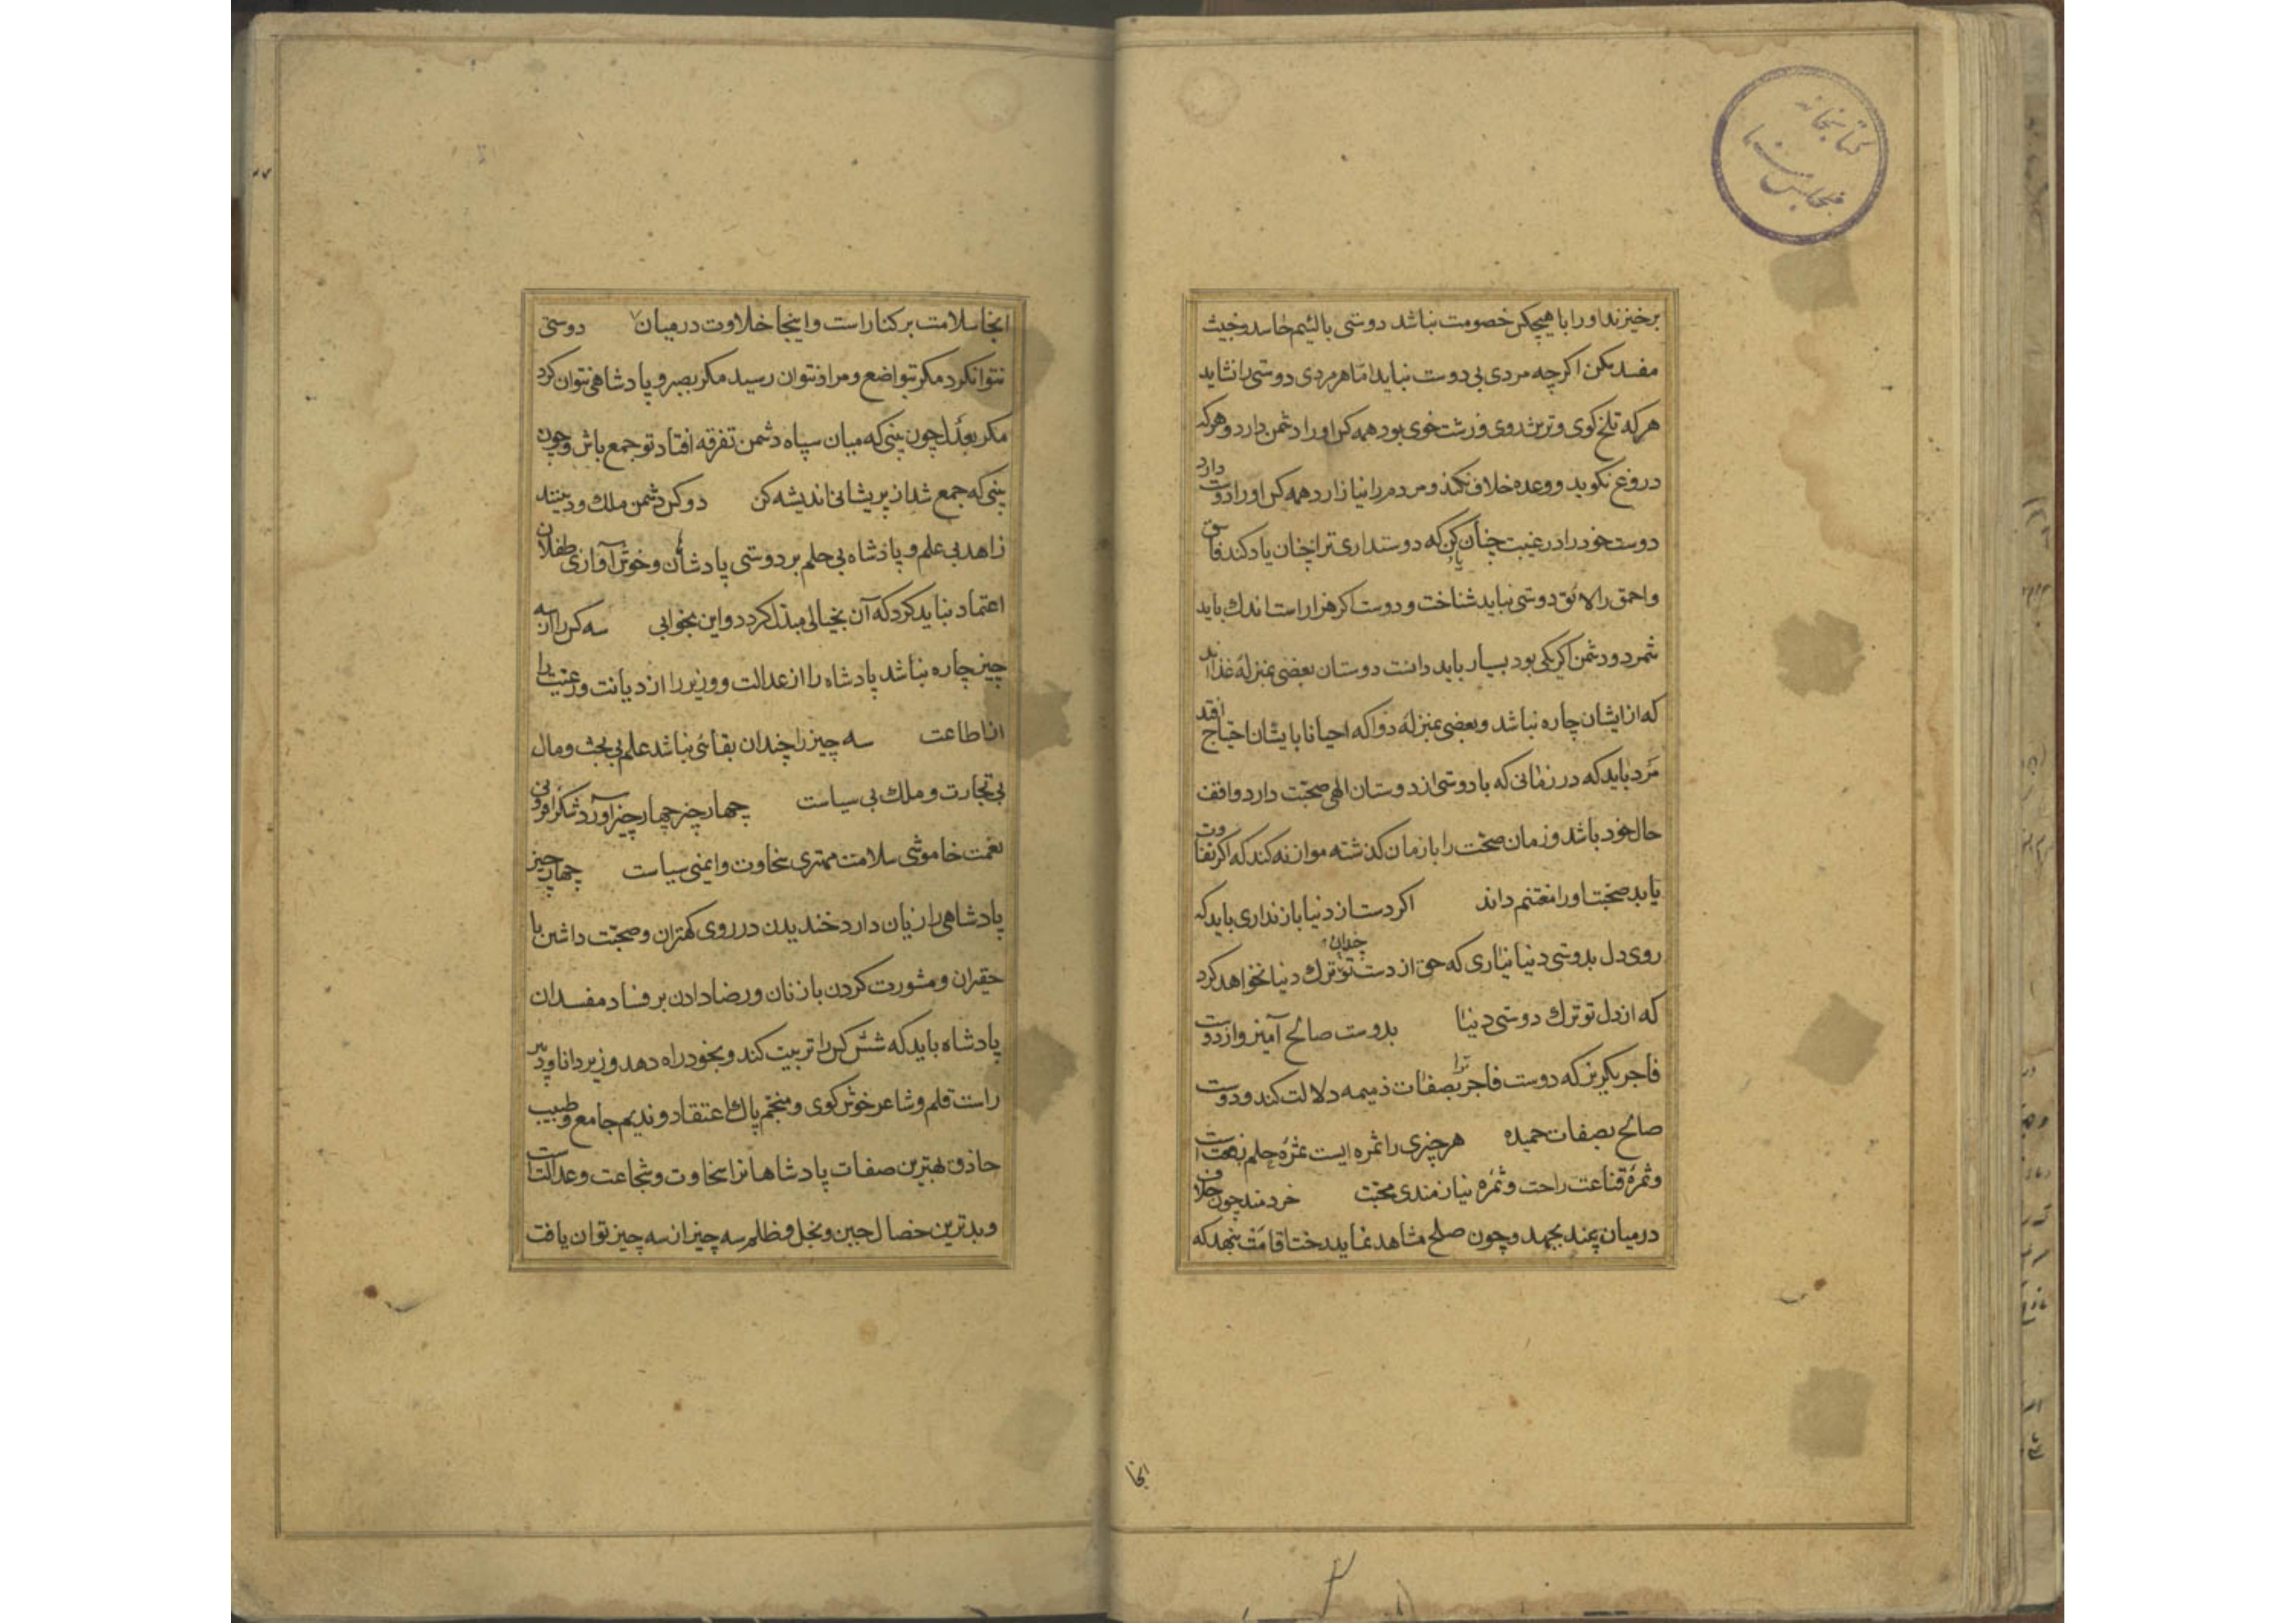 کتابخانه
مجلس سنا
برخیزند اورا باهیچکس خصومت نباشد دوستی بالئیم حاسد و خبیث
مفسد مکن اکرچه مردی بی دوست نباید اما هر مردی دوستی را نشاید
هرکه تلخ کوی و ترش روی و زشت خوی بود همه کس اورا دشمن دارد و هرکه
دروغ نکوید و وعده خلاف نکند و مردم را نیازارد همه کس اورا دوست دارد
دوست خود را در غیبت چنان یاد کن که دوستداری ترا چنان یاد کند فاسق
واحمق را لائق دوستی نباید شناخت و دوست اکر هزار است اندک باید
شمرد و دشمن اکر یکی بود بسیار باید دانست دوستان بعضی بمنزلهٔ غذااند
که از ایشان چاره نباشد و بعضی بمنزلهٔ دوا که احیانا با یشان احتیاج افتد
مرد باید که در زمانی که با دوستی از دوستان الهی صحبت دارد واقف
حال خود باشد و زمان صحبت را با زمان کذشته موازنه کند که اکر تفاوت
یابد صحبت اورا مغتنم داند اکر دست از دنیا باز نداری باید که
روی دل بدوستی دنیا نیاری که حق از دست تو چندان ترک دنیا نخواهد کرد
که از دل تو ترک دوستی دنیا بدوست صالح آمیز و از دوست
فاجر بکریز که دوست فاجر ترا بصفات ذمیمه دلالت کند و دوست
صالح بصفات حمیده هر چیزی را ثمره ایست ثمرهٔ حلم نصرت است
و ثمرهٔ قناعت راحت و ثمره نیازمندی محبت خردمند چون خلاف
درمیان بیند بجهد و چون صلح مشاهد نماید رخت اقامت بنهد که
انجا
انجا سلامت بر کنار است و اینجا حلاوت درمیان دوستی
نتوانکرد مکر بتواضع و مراد نتوان رسید مکر بصبر و پادشاهی نتوان کرد
مکر بعدل چون بینی که میان سپاه دشمن تفرقه افتاد تو جمع باش و چون
بینی که جمع شد از پریشانی اندیشه کن دو کس دشمن ملک و دینند
زاهد بی علم و پادشاه بی حلم بر دوستی پادشاهان و خوش آوازی طفلان
اعتماد نباید کرد که آن بخیالی مبدل کردد و این بخوابی سه کس را از سه
چیز چاره نباشد پادشاه را از عدالت و وزیر را از دیانت و رعیت را
از اطاعت سه چیز را چندان بقائی نباشد علم بی بحث و مال
بی تجارت و ملک بی سیاست چهار چیز چهار چیز آورد شکر افزونی
نعمت خاموشی سلامت مهتری سخاوت و ایمنی سیاست چهار چیز
پادشاهی را زیان دارد خندیدن در روی کهتران و صحبت داشتن با
حقیران و مشورت کردن با زنان و رضا دادن بر فساد مفسدان
پادشاه باید که شش کس را تربیت کند و بخود راه دهد وزیر دانا و دبیر
راست قلم و شاعر خوش کوی و منجم پاک اعتقاد و ندیم جامع و طبیب
حاذق بهترین صفات پادشاهانرا سخاوت و شجاعت و عدالت است
و بدترین خصال جبن و بخل و ظلم سه چیز از سه چیز توان یافت